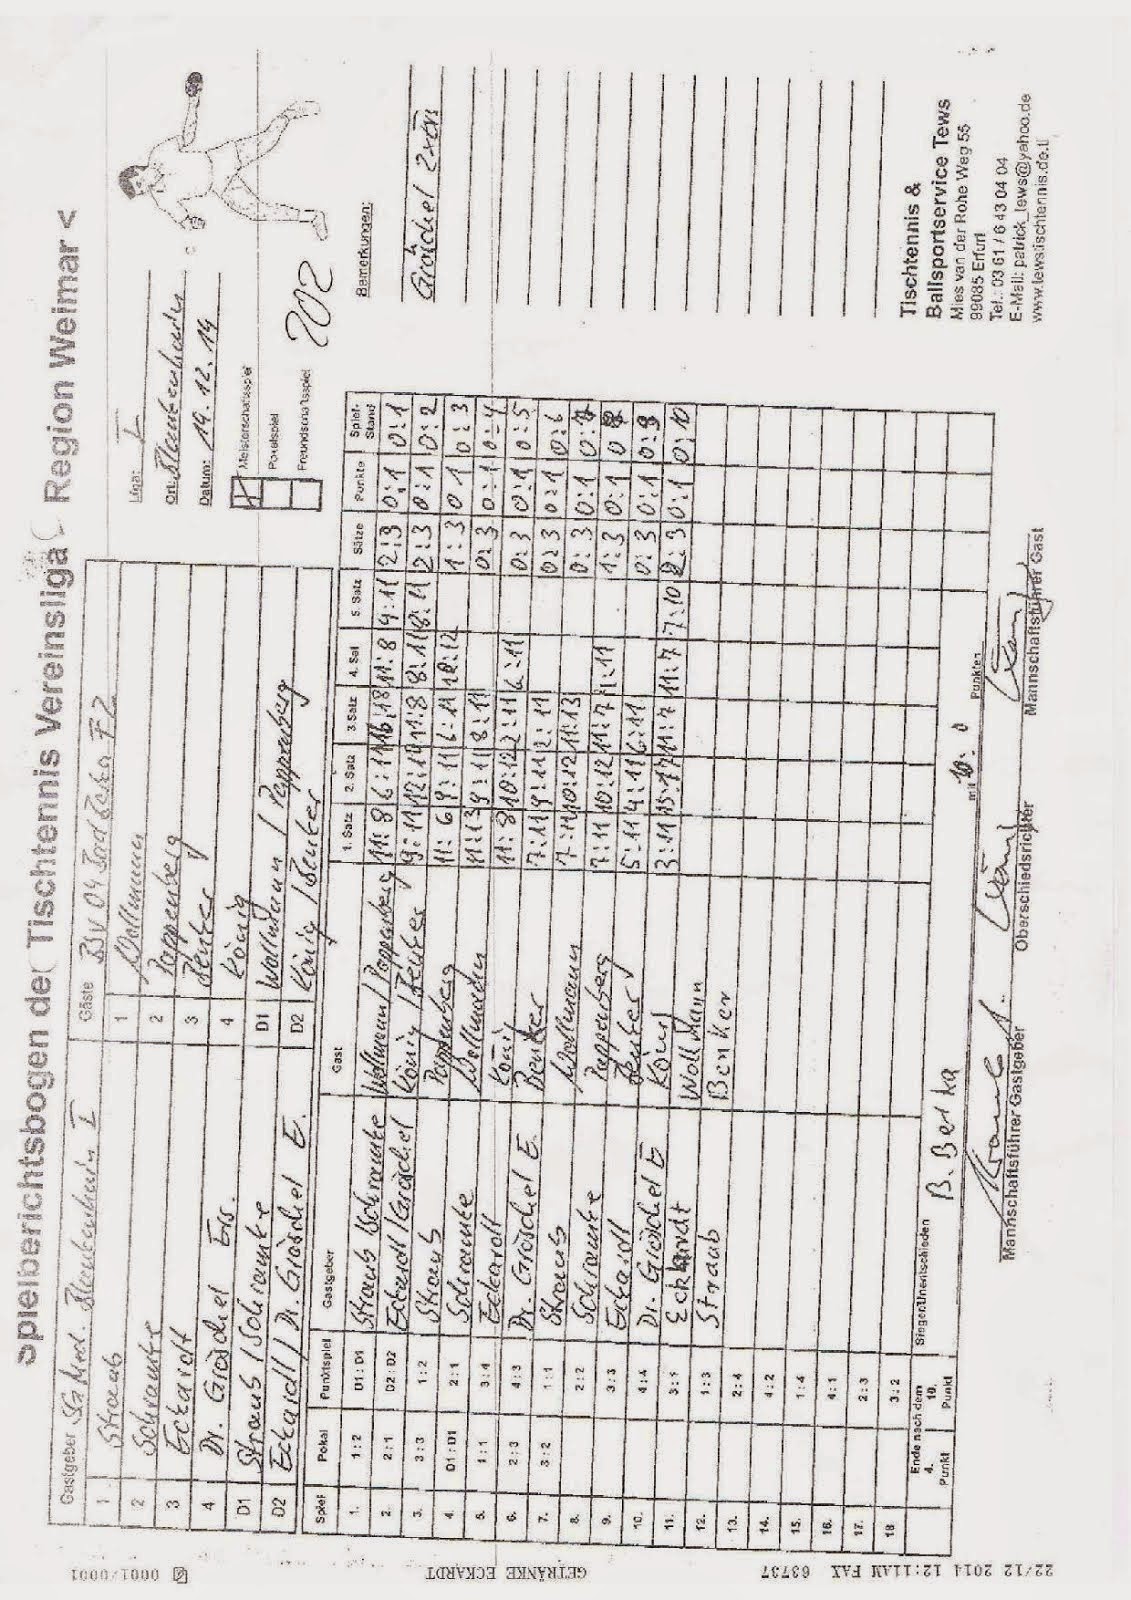 Spielberichtsbogen der Tischtennis Vereinsliga Region Weimar <
Gastgeber Blankenhain I
Gäste BSV 04 Bad Berka
Liga: I
Ort: Blankenhain
Datum: 14.12.14
Meisterschaftsspiel
Pokalspiel
Freundschaftsspiel
702
1 Straub 1 Wollmann
2 Schramke 2 Pappenberg
3 Eckardt 3 Benker
4 Dr. Gröschel Ers. 4 König
D1 Straub / Schramke D1 Wollmann / Pappenberg
D2 Eckardt / Dr. Gröschel E. D2 König / Benker
Bemerkungen:
Gröschel
Spiel Pokal Punktspiel Gastgeber Gast 1. Satz 2. Satz 3. Satz 4. Satz 5. Satz Sätze Punkte Spiel-Stand
1. 1 : 2 D1 : D1 Straub / Schramke Wollmann / Pappenberg 11:8 6:11 16:18 11:8 9:11 2:3 0:1 0:1
2. 2 : 1 D2 : D2 Eckardt / Gröschel König / Benker 9:11 12:14 11:8 8:11 2:3 0:1 0:2
3. 3 : 3 1 : 2 Straub Pappenberg 11:6 9:11 6:11 10:12 1:3 0 1 0:3
4. D1 : D1 2 : 1 Schramke Wollmann 11:13 9:11 8:11 0:3 0:1 0:4
5. 1 : 1 3 : 4 Eckardt König 11:8 10:12 2:11 6:11 0:3 0:1 0:5
6. 2 : 3 4 : 3 Dr. Gröschel E. Benker 7:11 9:11 2:11 0:3 0:1 0:6
7. 3 : 2 1 : 1 Straub Wollmann 7:11 10:12 11:13 0:3 0:1
8. 2 : 2 Schramke Pappenberg 7:11 10:12 11:7 1:3 0:1 0
9. 3 : 3 Eckardt Benker 5:11 4:11 6:11 0:3 0:1 0:9
10. 4 : 4 Dr. Gröschel E König 3:11 11:7 11:7 7:10 2:3 0:1 0:10
11. 3 : 1 Eckardt Wollmann
12. 1 : 3 Straub Benker
13. 2 : 4
14. 4 : 2
15. 1 : 4
16. 4 : 1
17. 2 : 3
18 3 : 2
Ende nach dem
4. Punkt
10. Punkt
Sieger/Unentschieden B. Berka mit 10:0 Punkten
Mannschaftsführer Gastgeber
Oberschiedsrichter
Mannschaftsführer Gast
Tischtennis &
Ballsportservice Tews
Mies van der Rohe Weg 55
99085 Erfurt
Tel.: 03 61 / 6 43 04 04
E-Mail: patrick_tews@yahoo.de
www.tewstischtennis.de.tl
22/12 2014 12:11AM FAX 63737
GETRÄNKE ECKARDT
0001/0001